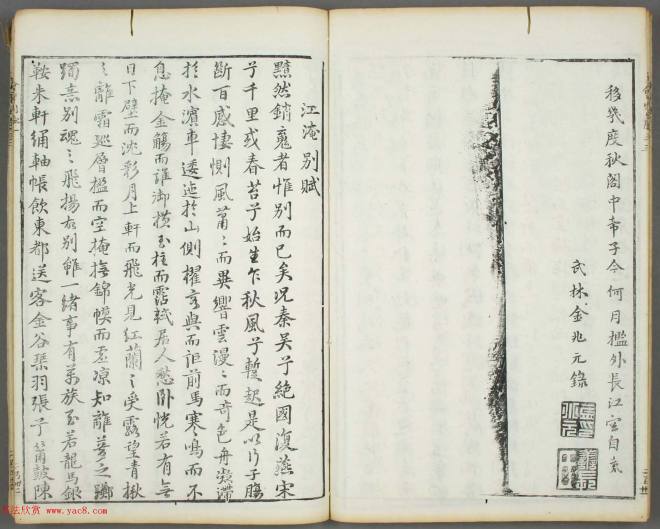 移幾度秋閣中帝子今何月檻外長江空自流
武林金兆元錄
江淹別賦
黯然銷魂者惟別而已矣況秦吳兮絕國復燕宋
兮千里或春苔兮始生乍秋風兮蹔起是以行子腸
斷百感悽惻風蕭〻而異響雲漫〻而奇色舟凝滯
於水濱車逶迤於山側櫂容與而詎前馬寒鳴而不
息掩金觴而誰御橫玉柱而霑軾居人愁臥怳若有亡
日下壁而沈彩月上軒而飛光見紅蘭之受露望青楸
之離霜巡層楹而空掩撫錦幙而虛涼知離夢之躑
躅意別魂之飛揚故別雖一緒事有萬族至若龍馬銀
鞍朱軒繡軸帳飲東都送客金谷琴羽張兮簫鼓陳
書法欣赏 www.yac8.com